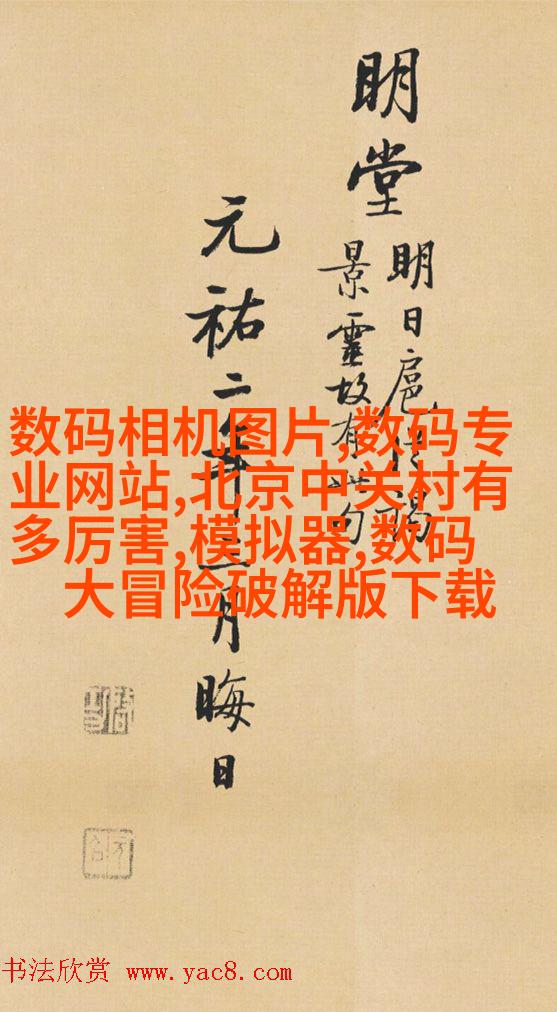 明堂
明日扈從謁
景靈故有此句
元祐二年三月晦日
数码相机图片,数码专
业网站,北京中关村有
多厉害,模拟器,数码
大冒险破解版下载
书法欣赏 www.yac8.com